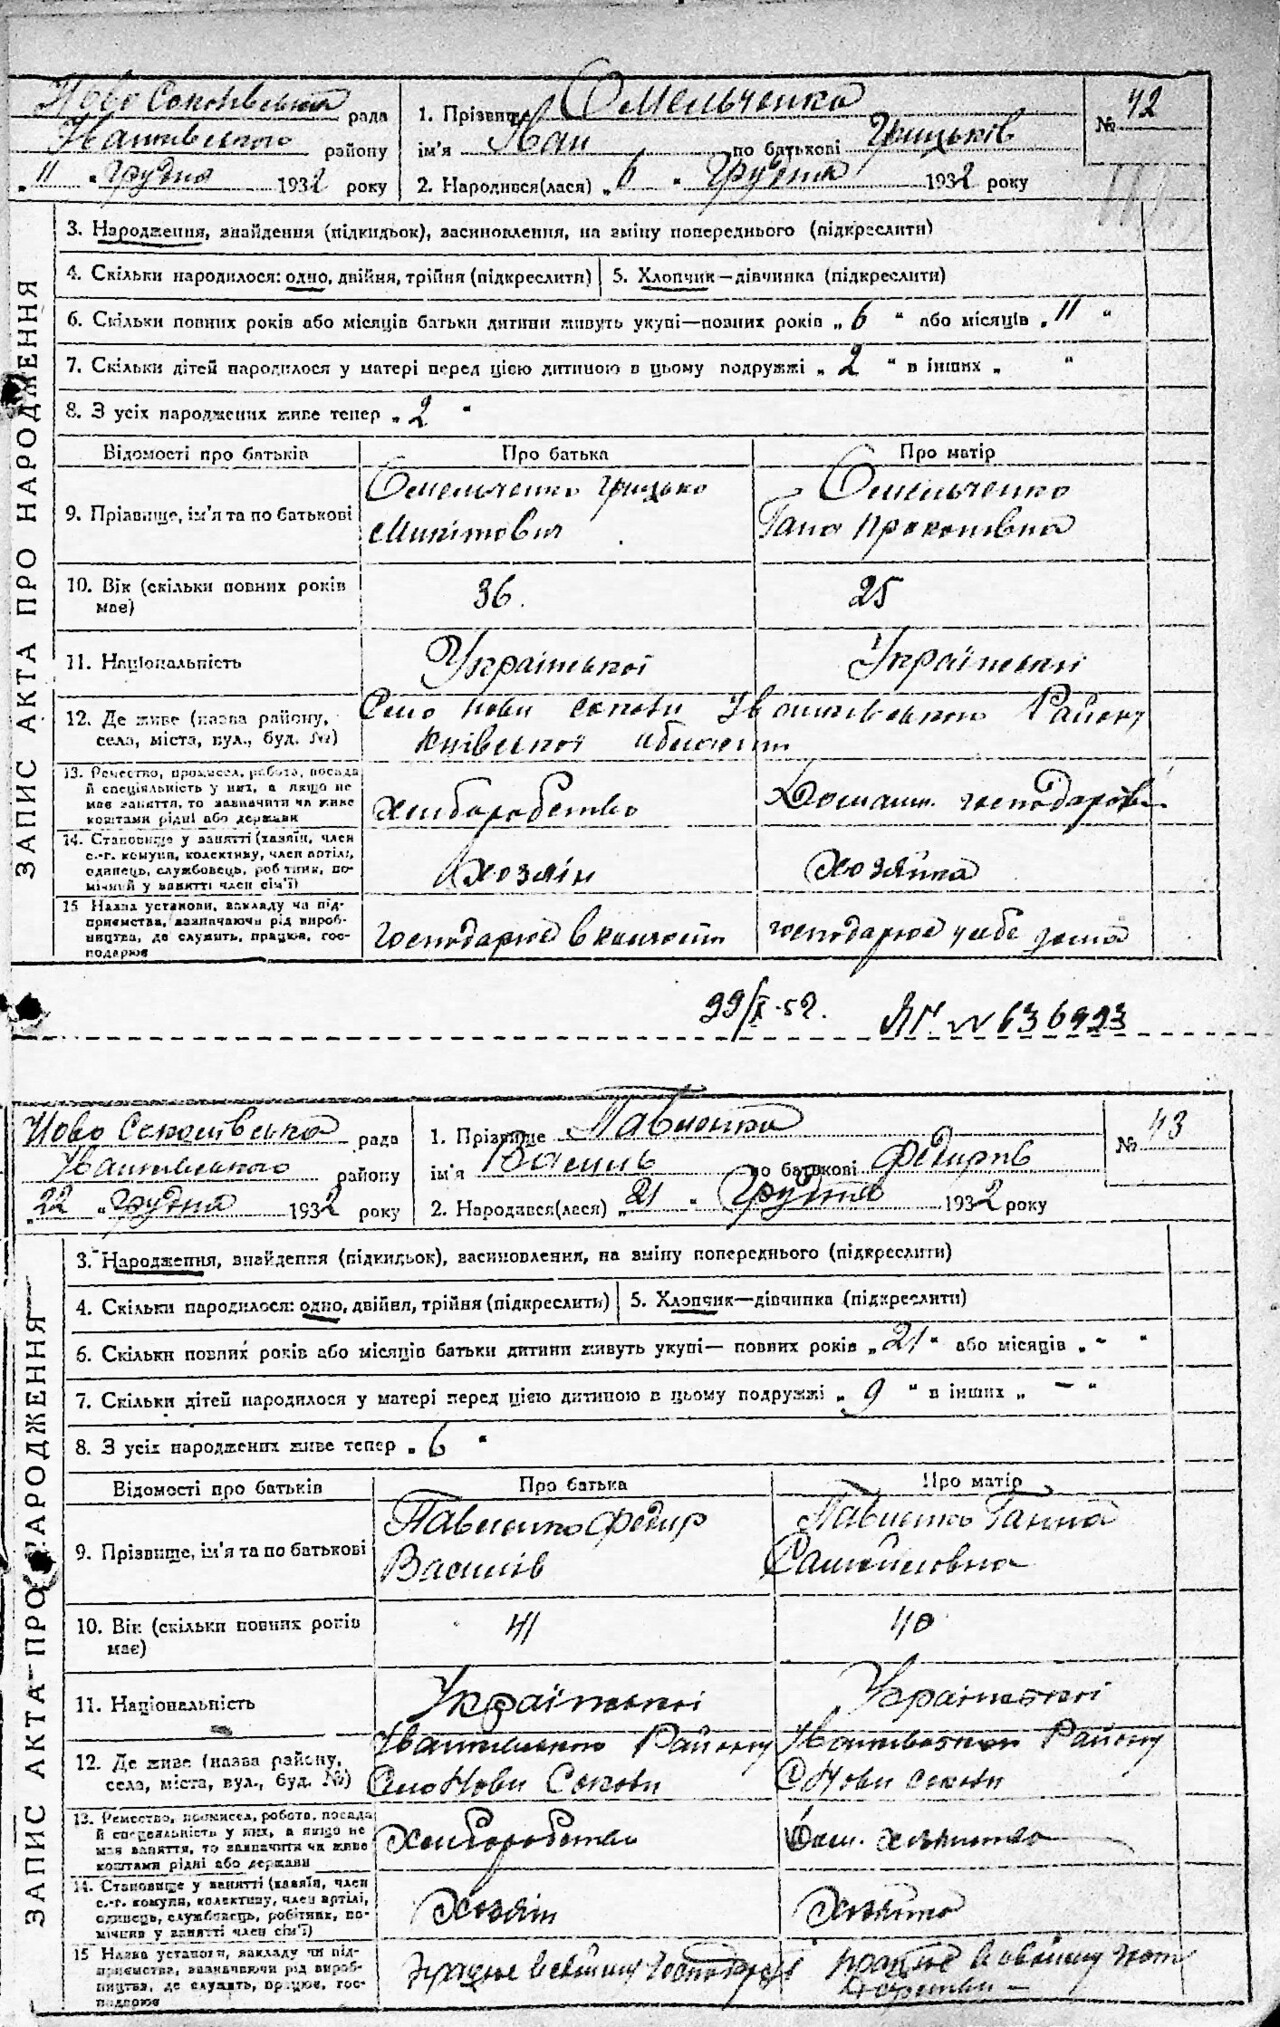 ЗАПИС АКТА ПРО НАРОДЖЕННЯ
рада
району
"11" Грудня 1932 року
1. Прізвище Омельченко
ім'я Іван по батькові Грицьків
2. Народився(лася) "6" Грудня 1932 року
№ 42
3. Народження, знайдення (підкидьок), засиновлення, на зміну попереднього (підкреслити)
4. Скільки народилося: одно, двійня, трійня (підкреслити)
5. Хлопчик—дівчинка (підкреслити)
6. Скільки повних років або місяців батьки дитини живуть укупі—повних років "6" або місяців "11"
7. Скільки дітей народилося у матері перед цією дитиною в цьому подружжі "2" в інших " "
8. З усіх народжених живе тепер "2"
Відомості про батьків
Про батька
Про матір
9. Прізвище, ім'я та по батькові
Омельченко Грицько
Микитович
Омельченко
Гана Прокопівна
10. Вік (скільки повних років
має)
36.
25
11. Національність
Української
Української
12. Де живе (назва району,
села, міста, вул., буд. №)
Село Нови Району
Київської області
13. Ремество, промисел, робота, посада
й спеціяльність у них, а якщо не
має заняття, то зазначити чи живе
коштами рідні або держави
Хліборобство
Домашн. господарові
14. Становище у занятті (хазяїн, член
с.-г. комуни, колективу, член артілі,
одинець, службовець, робітник, по-
мічний у занятті член сім'ї)
Хозяїн
Хозяйка
15 Назва установи, закладу чи під-
приємства, зазначаючи рід вироб-
ництва, де служить, працює, гос-
подарює
господарює в
господарює у себе дома
№ 636923
ЗАПИС АКТА ПРО НАРОДЖЕННЯ
рада
району
"22" Грудня 1932 року
1. Прізвище Павленко
ім'я Василь по батькові Федирів
2. Народився(лася) "21" Грудня 1932 року
№ 43
3. Народження, знайдення (підкидьок), засиновлення, на зміну попереднього (підкреслити)
4. Скільки народилося: одно, двійня, трійня (підкреслить)
5. Хлопчик—дівчинка (підкреслити)
6. Скільки повних років або місяців батьки дитини живуть укупі— повних років "21" або місяців "-"
7. Скільки дітей народилося у матері перед цією дитиною в цьому подружжі "9" в інших "—"
8. З усіх народжених живе тепер "6"
Відомості про батьків
Про батька
Про матір
9. Прізвище, ім'я та по батькові
Павленко Федир
Василів
Павленко Ганна
Самойловна
10. Вік (скільки повних років
має)
41
40
11. Національність
Української
Української
12. Де живе (назва району,
села, міста, вул., буд. №)
Району
Село Нови
Району
С Нови
13. Ремество, промисел, робота, посада
й спеціяльність у них, а якщо не
має заняття, то зазначити чи живе
коштами рідні або держави
Хліборобство
14. Становище у занятті (хазяїн, член
с.-г. комуни, колективу, член артілі,
одинець, службовець, робітник, по-
мічник у занятті член сім'ї)
Хозяїн
Хозяйка
15 Назва установи, закладу чи під-
приємства, зазначаючи рід вироб-
ництва, де служить, працює, гос-
подарює
працює в своїму
працює в своїму